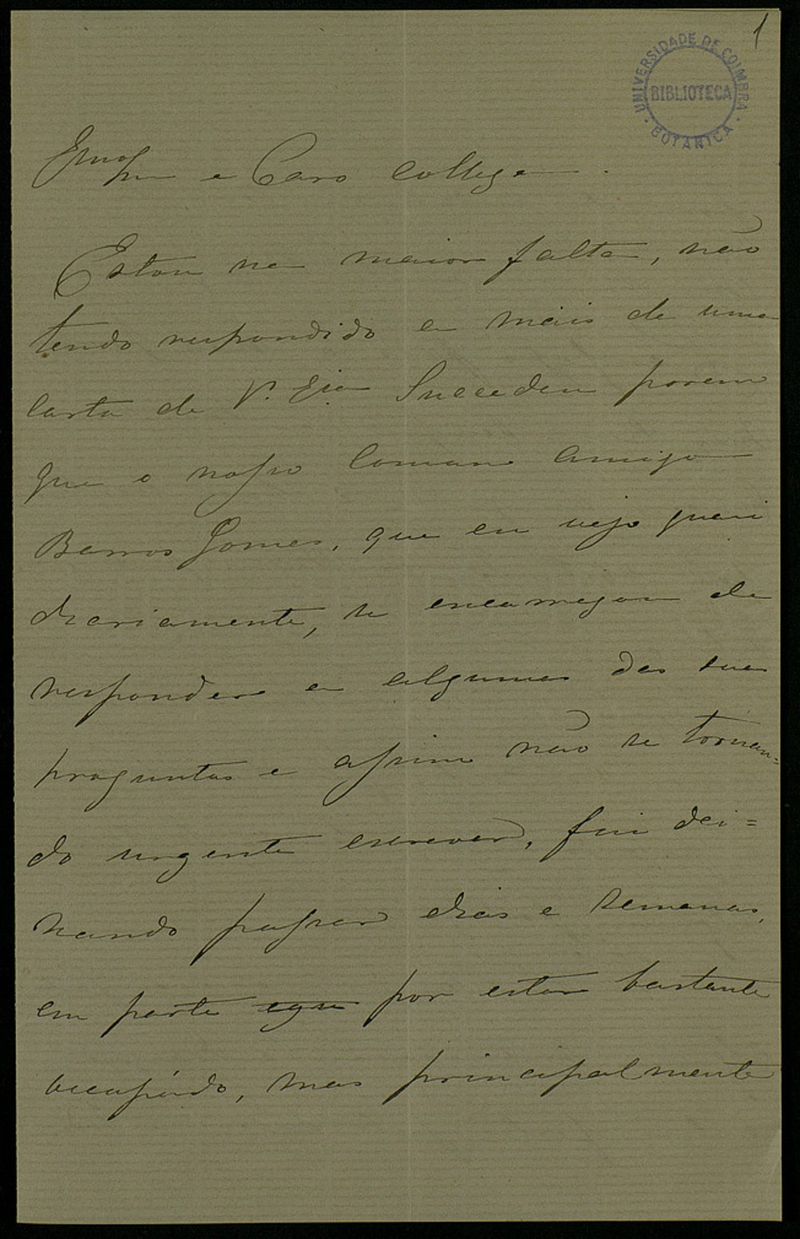 1
UNIVERSIDADE DE COIMBRA
BIBLIOTECA
BOTANICA
Exmo Sr e Caro collega.
Estou na maior falta, não
tendo respondido a mais de uma
carta de V. Exa Succedeu porem
que o nosso comum amigo
Barros Gomes, que eu vejo quasi
diariamente, se encarregou de
responder a algumas das suas
preguntas e assim não se tornan=
do urgente escrever, fui dei=
xando passar dias e semanas,
em parte por estar bastante
occupado, mas principalmente